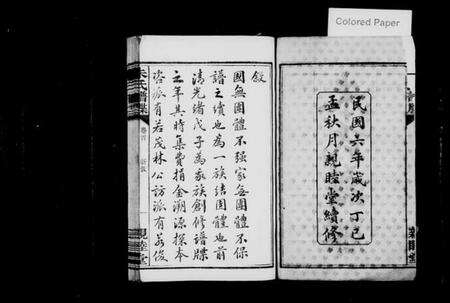 Colored Paper
民國六年歲次丁巳
孟秋月親睦堂續修
敘
國無團體不强家無團體不保
譜之續也為一族結團體也前
清光緒戊子為家族創修譜牒
之年其時集費捐金溯源探本
咨派有若茂林公訪派有若俊
朱氏譜牒
卷首
親睦堂